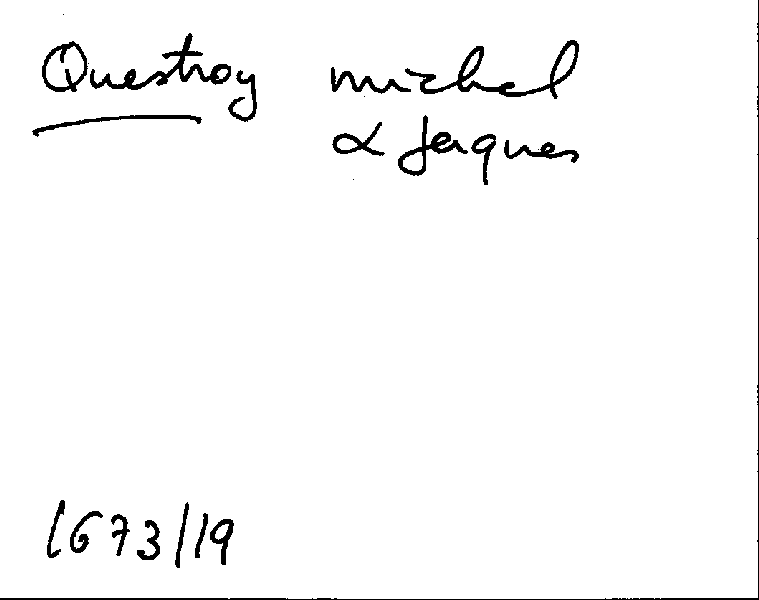 Questroy michel
& Jacques
1673/19